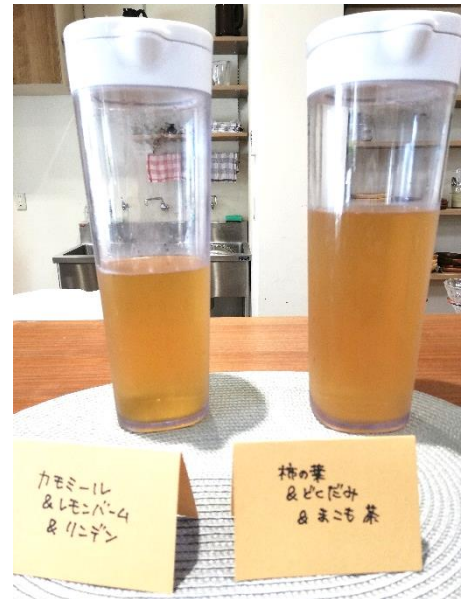 カモミール
&レモンバーム
&リンデン
柿の葉
&どくだみ
&まこも茶